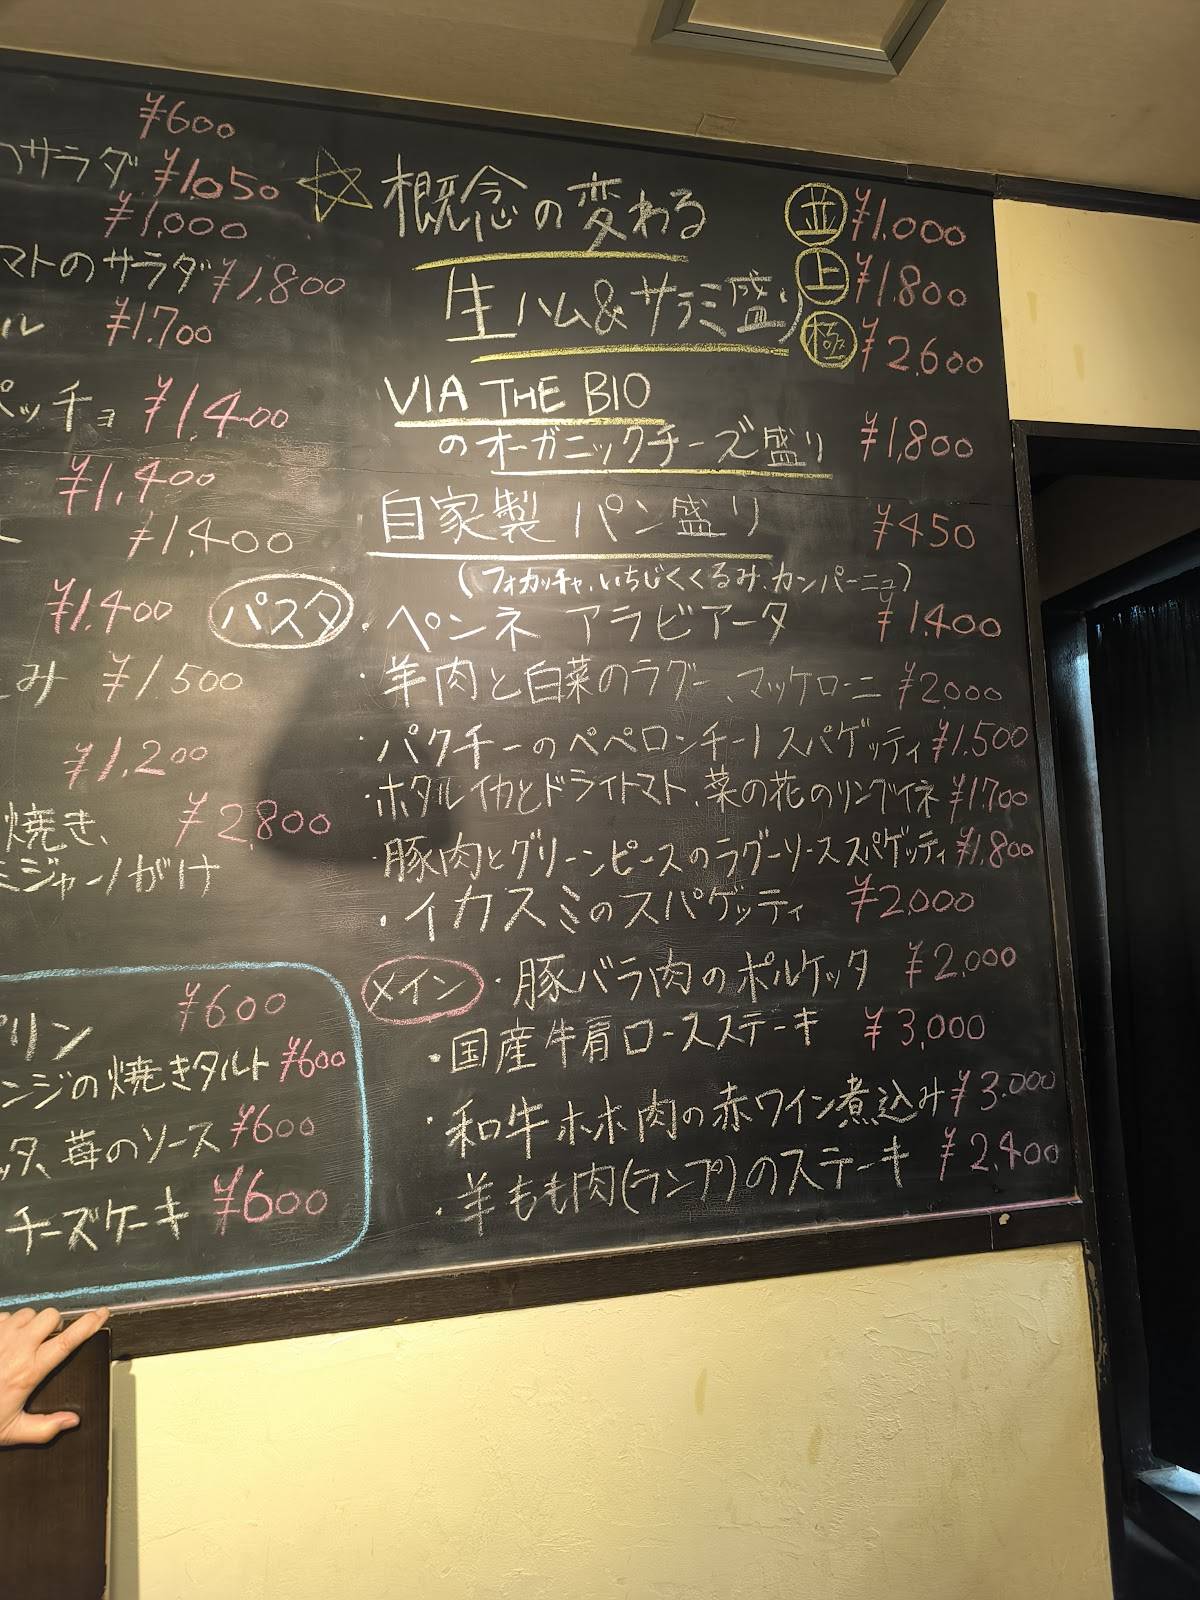 ¥600
のサラダ ¥1.050
¥1,000
マトのサラダ ¥1,800
ル ¥1.700
ペッチョ ¥1,400
¥1,400
¥1,400
¥1.400
み ¥1500
¥1,200
焼き、 ¥2,800
ミジャーノがけ
¥600
プリン
ンジの焼きタルト ¥600
ッタ、苺のソース ¥600
チーズケーキ ¥600
☆ 概念の変わる
生ハム&サラミ盛り
並 ¥1.000
上 ¥1.800
極 ¥2.600
VIA THE BIO
のオーガニックチーズ盛り ¥1,800
自家製 パン盛り ¥450
(フォカッチャ、いちじくくるみ、カンパーニュ)
パスタ ・ペンネ アラビアータ ¥1.400
・羊肉と白菜のラグー、マッケローニ ¥2000
・パクチーのペペロンチーノスパゲッティ ¥1.500
・ホタルイカとドライトマト、菜の花のリングイネ ¥1700
・豚肉とグリーンピースのラグーソーススパゲッティ ¥1,800
・イカスミのスパゲッティ ¥2.000
メイン ・豚バラ肉のポルケッタ ¥2.000
・国産牛肩ロースステーキ ¥3,000
・和牛ホホ肉の赤ワイン煮込み ¥3.000
・羊もも肉(ランプ)のステーキ ¥2,400